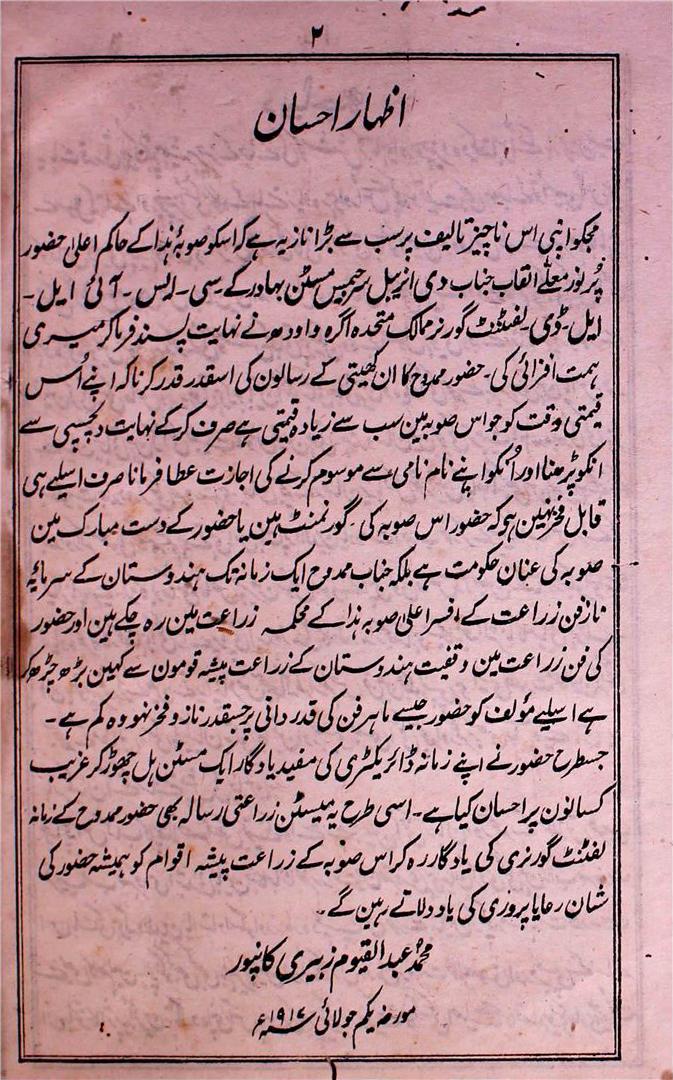 ۲
اظہار احسان
مجکو اپنی اس ناچیز تالیف پر سب سے بڑا ناز یہ ہے کہ اسکو صوبۂ ہذا کے حاکم اعلیٰ حضور
پُر نور معلے القاب جناب دی انریبل سر جیمس مسٹن بہادر کے۔سی۔ایس۔آئی ایل۔
ایل۔ڈی۔لفٹنٹ گورنر ممالک متحدہ اگرہ و اودھ نے نہایت پسند فرما کر میری
ہمت افزائی کی۔حضور ممدوح کا ان کھیتی کے رسالون کی اسقدر قدر کرنا کہ اپنے اُس
قیمتی وقت کو جو اس صوبہ مین سب سے زیادہ قیمتی ہے صرف کر کے نہایت دلچسپی سے
انکو پڑھنا اور اُنکو اپنے نام نامی سے موسوم کرنے کی اجازت عطا فرمانا صرف اسلیے ہی
قابل فخر نہین ہو کہ حضور اس صوبہ کی گورنمنٹ ہین یا حضور کے دست مبارک مین
صوبہ کی عنان حکومت ہے بلکہ جناب ممدوح ایک زمانہ تک ہندوستان کے سرمایۂ
ناز فن زراعت کے افسر اعلی صوبہ ہذا کے محکمہ زراعت مین رہ چکے ہین اور حضور
کی فن زراعت مین وقفیت ہندوستان کے زراعت پیشہ قومون سے کہین بڑھ چڑھ کر
ہے اسلیے مؤلف کو حضور جیسے ماہر فن کی قدر دانی پر جسقدر ناز و فخر نہو وہ کم ہے۔
جسطرح حضور نے اپنے زمانہ ڈائریکٹری کی مفید یادگار ایک مسٹن ہل چھوڑ کر غریب
کسانون پر احسان کیا ہے۔اسی طرح یہ میسٹن زراعتی رسالہ بھی حضور ممدوح کے زمانہ
لفٹنٹ گورنری کی یادگار رہ کر اس صوبہ کے زراعت پیشہ اقوام کو ہمیشہ حضور کی
شان رعایا پروری کی یاد دلاتے رہین گے۔
محمد عبد القیوم زبیری کانپور
مورخہ یکم جولائی سنہ ۱۹۱۷ء